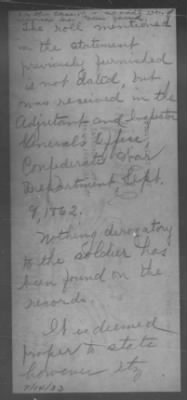 The roll mentioned
in the statement
previously furnished
is not dated, but
was received in the
Adjutant and Inspector
General's Office,
Confederate War
Department, Sept.
9, 1862.
Nothing derogatory
to the soldier has
been found on the
records.
It is deemed
proper to state
however